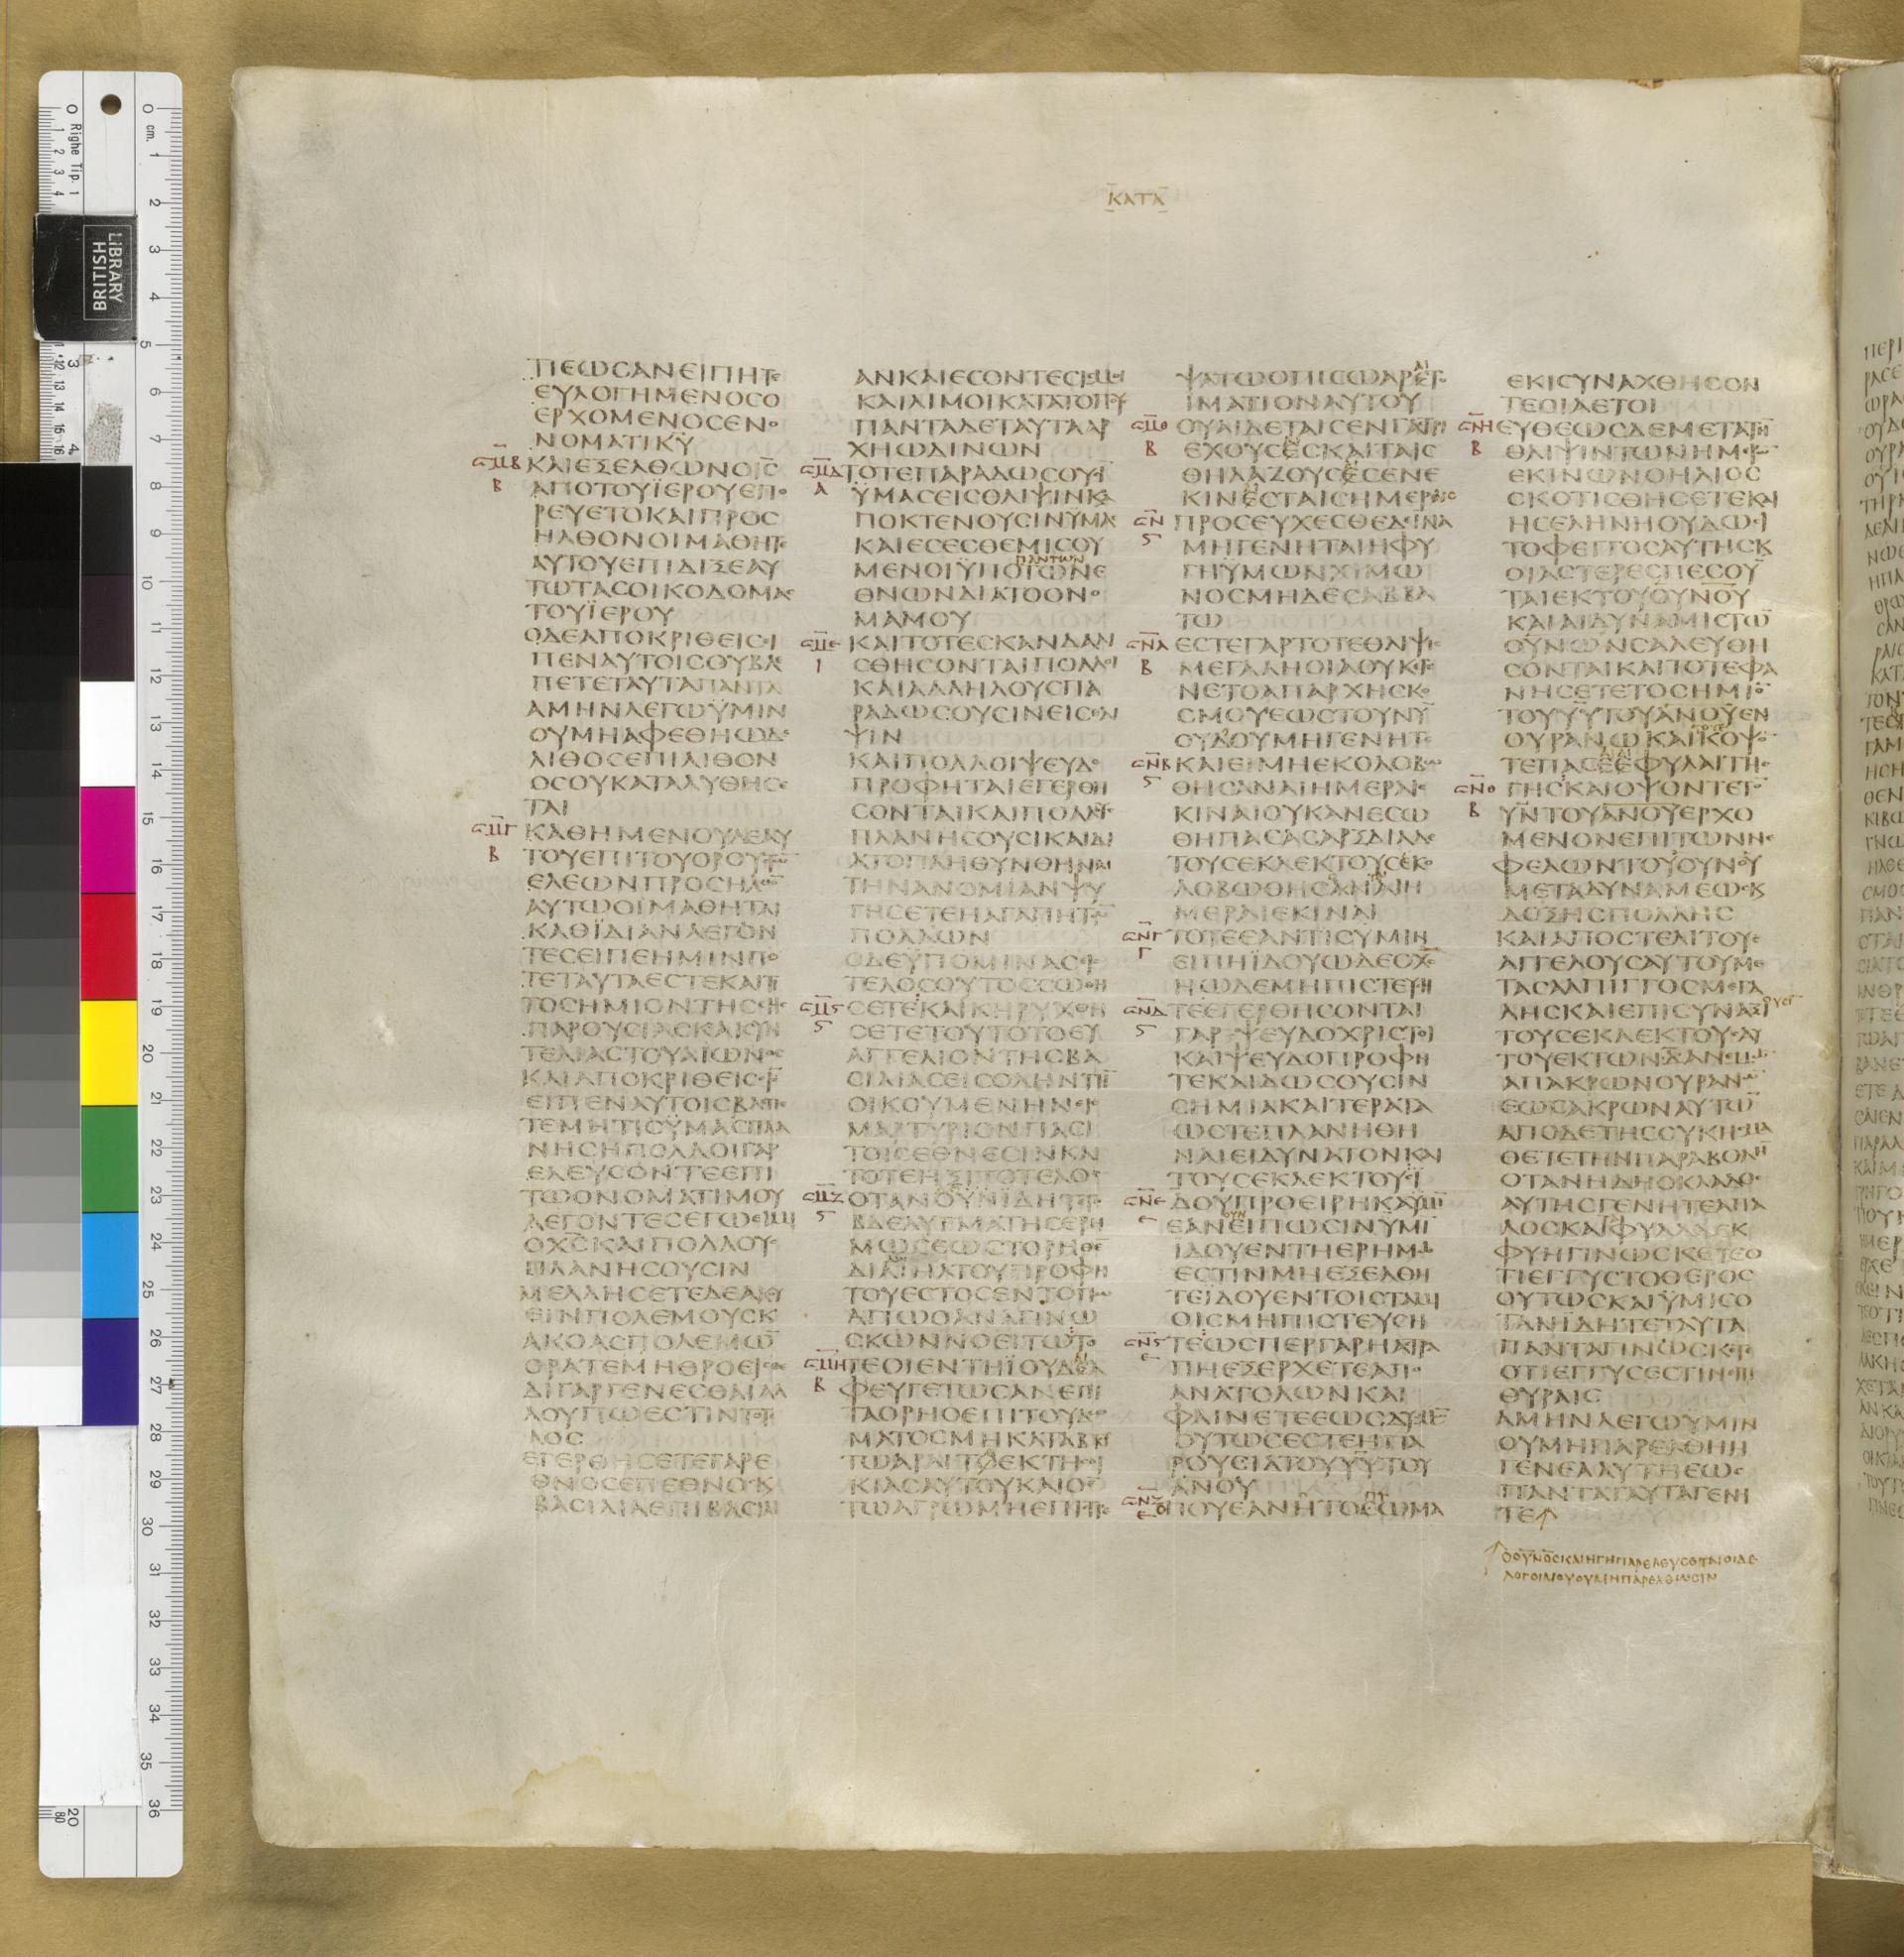 ΚΑΤΑ
ΤΙΕΩΣΑΝΕΙΠΗΤΕ
ΕΥΛΟΓΗΜΕΝΟΣΟ
ΕΡΧΟΜΕΝΟΣΕΝΟ
ΝΟΜΑΤΙΚΥ
ΚΑΙΕΞΕΛΘΩΝΟΙΣ
ΑΠΟΤΟΥΪΕΡΟΥΕΠΟ
ΡΕΥΕΤΟΚΑΙΠΡΟΣ
ΗΛΘΟΝΟΙΜΑΘΗΤΕ
ΑΥΤΟΥΕΠΙΔΙΞΕΑΥ
ΤΩΤΑΣΟΙΚΟΔΟΜΑΣ
ΤΟΥΪΕΡΟΥ
ΟΔΕΑΠΟΚΡΙΘΕΙΣΕΙ
ΠΕΝΑΥΤΟΙΣΟΥΒΛΕ
ΠΕΤΕΤΑΥΤΑΠΑΝΤΑ
ΑΜΗΝΛΕΓΩΫΜΙΝ
ΟΥΜΗΑΦΕΘΗΩΔΕ
ΛΙΘΟΣΕΠΙΛΙΘΟΝ
ΟΣΟΥΚΑΤΑΛΥΘΗΣΕ
ΤΑΙ
ΚΑΘΗΜΕΝΟΥΔΕΑΥ
ΤΟΥΕΠΙΤΟΥΟΡΟΥΣΤΩ
ΕΛΕΩΝΠΡΟΣΗΛΘΟΝ
ΑΥΤΩΟΙΜΑΘΗΤΑΙ
ΚΑΘΪΔΙΑΝΛΕΓΟΝ
ΤΕΣΕΙΠΕΗΜΙΝΠΟ
ΤΕΤΑΥΤΑΕΣΤΕΚΑΙΤΙ
ΤΟΣΗΜΙΟΝΤΗΣΣΗΣ
ΠΑΡΟΥΣΙΑΣΚΑΙΣΥΝ
ΤΕΛΙΑΣΤΟΥΑΙΩΝΟΣ
ΚΑΙΑΠΟΚΡΙΘΕΙΣΟΙΣ
ΕΙΠΕΝΑΥΤΟΙΣΒΛΕΠΕ
ΤΕΜΗΤΙΣΫΜΑΣΠΛΑ
ΝΗΣΗΠΟΛΛΟΙΓΑΡ
ΕΛΕΥΣΟΝΤΕΕΠΙ
ΤΩΟΝΟΜΑΤΙΜΟΥ
ΛΕΓΟΝΤΕΣΕΓΩΕΙΜΙ
ΟΧΣΚΑΙΠΟΛΛΟΥΣ
ΠΛΑΝΗΣΟΥΣΙΝ
ΜΕΛΛΗΣΕΤΕΔΕΑΚΟΥ
ΕΙΝΠΟΛΕΜΟΥΣΚ
ΑΚΟΑΣΠΟΛΕΜΩ
ΟΡΑΤΕΜΗΘΡΟΕΙΣΘΕ
ΔΙΓΑΡΓΕΝΕΣΘΑΙΑΛ
ΛΟΥΠΩΕΣΤΙΝΤΟΤΕ
ΛΟΣ
ΕΓΕΡΘΗΣΕΤΕΓΑΡΕ
ΘΝΟΣΕΠΕΘΝΟΣΚ
ΒΑΣΙΛΙΑΕΠΙΒΑΣΙΛΙ
ΑΝΚΑΙΕΣΟΝΤΕΣΙΣΜΟΙ
ΚΑΙΛΙΜΟΙΚΑΤΑΤΟΠΟΥΣ
ΠΑΝΤΑΔΕΤΑΥΤΑΑΡ
ΧΗΩΔΙΝΩΝ
ΤΟΤΕΠΑΡΑΔΩΣΟΥΣΙ
ΫΜΑΣΕΙΣΘΛΙΨΙΝΚΑ
ΠΟΚΤΕΝΟΥΣΙΝΫΜΑΣ
ΚΑΙΕΣΕΣΘΕΜΙΣΟΥ
ΠΑΝΤΩΝ
ΜΕΝΟΙΫΠΟΤΩΝΕ
ΘΝΩΝΔΙΑΤΟΟΝΟ
ΜΑΜΟΥ
ΚΑΙΤΟΤΕΣΚΑΝΔΑΛΙ
ΣΘΗΣΟΝΤΑΙΠΟΛΛΟΙ
ΚΑΙΑΛΛΗΛΟΥΣΠΑ
ΡΑΔΩΣΟΥΣΙΝΕΙΣΘΛΙ
ΨΙΝ
ΚΑΙΠΟΛΛΟΙΨΕΥΔΟ
ΠΡΟΦΗΤΑΙΕΓΕΡΘΗ
ΣΟΝΤΑΙΚΑΙΠΟΛΛΟΥΣ
ΠΛΑΝΗΣΟΥΣΙΚΑΙΔΙ
ΑΤΟΠΛΗΘΥΝΘΗΝΑΙ
ΤΗΝΑΝΟΜΙΑΝΨΥ
ΓΗΣΕΤΕΗΑΓΑΠΗΤΩΝ
ΠΟΛΛΩΝ
ΟΔΕΫΠΟΜΙΝΑΣΕΙΣ
ΤΕΛΟΣΟΥΤΟΣΣΩΘΗ
ΣΕΤΕΚΑΙΚΗΡΥΧΘΗ
ΣΕΤΕΤΟΥΤΟΤΟΕΥ
ΑΓΓΕΛΙΟΝΤΗΣΒΑ
ΣΙΛΙΑΣΕΙΣΟΛΗΝΤΗ
ΟΙΚΟΥΜΕΝΗΝΕΙΣ
ΜΑΡΤΥΡΙΟΝΠΑΣΙ
ΤΟΙΣΕΘΝΕΣΙΝΚΑΙ
ΤΟΤΕΗΞΙΤΟΤΕΛΟΣ
ΟΤΑΝΟΥΝΪΔΗΤΕΤΟ
ΒΔΕΛΥΓΜΑΤΗΣΕΡΗ
ΜΩΣΕΩΣΤΟΡΗΘΕΝ
ΔΙΑΔΑΝΙΗΛΤΟΥΠΡΟΦΗ
ΤΟΥΕΣΤΟΣΕΝΤΟΠΩ
ΑΓΙΩΟΑΝΑΓΙΝΩ
ΣΚΩΝΝΟΕΙΤΩΤΟ
ΤΕΟΙΕΝΤΗΪΟΥΔΕΑ
ΦΕΥΓΕΤΩΣΑΝΕΠΙ
ΤΑΟΡΗΟΕΠΙΤΟΥΔΩ
ΜΑΤΟΣΜΗΚΑΤΑΒΑΤΩ
ΤΩΑΡΑΙΤΟΕΚΤΗΣΟΙ
ΚΙΑΣΑΥΤΟΥΚΑΙΟΕΝ
ΤΩΑΓΡΩΜΗΕΠΙΣΤΡΕ
ΨΑΤΩΟΠΙΣΩΑΡΕΤ
ΙΜΑΤΙΟΝΑΥΤΟΥ
ΟΥΑΙΔΕΤΑΙΣΕΝΓΑΣΤΡΙ
ΕΧΟΥΣΕΣΚΑΙΤΑΙΣ
ΘΗΛΑΖΟΥΣΕΣΕΝΕ
ΚΙΝΕΣΤΑΙΣΗΜΕΡΑΙΣ
ΠΡΟΣΕΥΧΕΣΘΕΔΕΙΝΑ
ΜΗΓΕΝΗΤΑΙΗΦΥ
ΓΗΥΜΩΝΧΙΜΩ
ΝΟΣΜΗΔΕΣΑΒΒΑ
ΤΩ
ΕΣΤΕΓΑΡΤΟΤΕΘΛΙΨΙΣ
ΜΕΓΑΛΗΟΙΑΟΥΚΕΓΕ
ΝΕΤΟΑΠΑΡΧΗΣΚΟ
ΣΜΟΥΕΩΣΤΟΥΝΥ
ΟΥΔΟΥΜΗΓΕΝΗΤΕ
ΚΑΙΕΙΜΗΕΚΟΛΟΒΩ
ΘΗΣΑΝΑΙΗΜΕΡΑΙΕ
ΚΙΝΑΙΟΥΚΑΝΕΣΩ
ΘΗΠΑΣΑΣΑΡΞΔΙΑΔΕ
ΤΟΥΣΕΚΛΕΚΤΟΥΣΕΚΟ
ΛΟΒΩΘΗΣΑΝΑΙΗ
ΜΕΡΑΙΕΚΙΝΑΙ
ΤΟΤΕΕΑΝΤΙΣΥΜΙΝ
ΕΙΠΗΪΔΟΥΩΔΕΟΧΣ
ΗΩΔΕΜΗΠΙΣΤΕΥΗ
ΤΕΕΓΕΡΘΗΣΟΝΤΑΙ
ΓΑΡΨΕΥΔΟΧΡΙΣΤΟΙ
ΚΑΙΨΕΥΔΟΠΡΟΦΗ
ΤΕΚΑΙΔΩΣΟΥΣΙΝ
ΣΗΜΙΑΚΑΙΤΕΡΑΤΑ
ΩΣΤΕΠΛΑΝΗΘΗ
ΝΑΙΕΙΔΥΝΑΤΟΝΚΑΙ
ΤΟΥΣΕΚΛΕΚΤΟΥΣΪ
ΔΟΥΠΡΟΕΙΡΗΚΑΫΜΙ
ΕΑΝΕΙΠΩΣΙΝΫΜΙ
ΙΔΟΥΕΝΤΗΕΡΗΜΩ
ΕΣΤΙΝΜΗΕΞΕΛΘΗ
ΤΕΪΔΟΥΕΝΤΟΙΣΤΑΜΙ
ΟΙΣΜΗΠΙΣΤΕΥΣΗ
ΤΕΩΣΠΕΡΓΑΡΗΑΣΤΡΑ
ΠΗΕΞΕΡΧΕΤΕΑΠΟ
ΑΝΑΤΟΛΩΝΚΑΙ
ΦΑΙΝΕΤΕΕΩΣΔΥΣΜΩ
ΟΥΤΩΣΕΣΤΕΗΠΑ
ΡΟΥΣΙΑΤΟΥΥΫΤΟΥ
ΑΝΟΥ
ΟΠΟΥΕΑΝΗΤΟΣΩΜΑ
ΕΚΙΣΥΝΑΧΘΗΣΟΝ
ΤΕΟΙΑΕΤΟΙ
ΕΥΘΕΩΣΔΕΜΕΤΑΤΗ
ΘΛΙΨΙΝΤΩΝΗΜΕΡΩ
ΕΚΙΝΩΝΟΗΛΙΟΣ
ΣΚΟΤΙΣΘΗΣΕΤΕΚΑΙ
ΗΣΕΛΗΝΗΟΥΔΩΣΙ
ΤΟΦΕΓΓΟΣΑΥΤΗΣΚ
ΟΙΑΣΤΕΡΕΣΠΕΣΟΥ
ΤΑΙΕΚΤΟΥΟΥΝΟΥ
ΚΑΙΑΙΔΥΝΑΜΙΣΤΩ
ΟΥΝΩΝΣΑΛΕΥΘΗ
ΣΟΝΤΑΙΚΑΙΤΟΤΕΦΑ
ΝΗΣΕΤΕΤΟΣΗΜΙΟ
ΤΟΥΥΫΤΟΥΑΝΟΥΕΝ
ΟΥΡΑΝΩΚΑΙΚΟΨΟ
ΤΕΠΑΣΕΕΦΥΛΑΙΤΗΣ
ΓΗΣΚΑΙΟΨΟΝΤΕΤ
ΥΝΤΟΥΑΝΟΥΕΡΧΟ
ΜΕΝΟΝΕΠΙΤΩΝΝΕ
ΦΕΛΩΝΤΟΥΟΥΝΟΥ
ΜΕΤΑΔΥΝΑΜΕΩΣΚ
ΔΟΞΗΣΠΟΛΛΗΣ
ΚΑΙΑΠΟΣΤΕΛΙΤΟΥΣ
ΑΓΓΕΛΟΥΣΑΥΤΟΥΜΕ
ΤΑΣΑΛΠΙΓΓΟΣΜΕΓΑ
ΛΗΣΚΑΙΕΠΙΣΥΝΑΞΙ
ΤΟΥΣΕΚΛΕΚΤΟΥΣΑΥ
ΤΟΥΕΚΤΩΝΔΑΝΕΜΩ
ΑΠΑΚΡΩΝΟΥΡΑΝΩ
ΕΩΣΑΚΡΩΝΑΥΤΩ
ΑΠΟΔΕΤΗΣΣΥΚΗΣΜΑ
ΘΕΤΕΤΗΝΠΑΡΑΒΟΛΗ
ΟΤΑΝΗΔΗΟΚΛΑΔΟΣ
ΑΥΤΗΣΓΕΝΗΤΕΑΠΑ
ΛΟΣΚΑΙΦΥΛΛΑΕΚ
ΦΥΗΓΙΝΩΣΚΕΤΕΟ
ΤΙΕΓΓΥΣΤΟΘΕΡΟΣ
ΟΥΤΩΣΚΑΙΫΜΙΣΟ
ΤΑΝΙΔΗΤΕΤΑΥΤΑ
ΠΑΝΤΑΓΙΝΩΣΚΕΤΕ
ΟΤΙΕΓΓΥΣΕΣΤΙΝΕΠΙ
ΘΥΡΑΙΣ
ΑΜΗΝΛΕΓΩΥΜΙΝ
ΟΥΜΗΠΑΡΕΛΘΗΗ
ΓΕΝΕΑΑΥΤΗΕΩΣ
ΠΑΝΤΑΤΑΥΤΑΓΕΝΗ
ΤΕ
ΟΟΥΝΟΣΚΑΙΗΓΗΠΑΡΕΛΕΥΣΟΤΑΙΟΙΔΕ
ΛΟΓΟΙΜΟΥΟΥΜΗΠΑΡΕΛΘΩΣΙΝ
LIBRARY
BRITISH